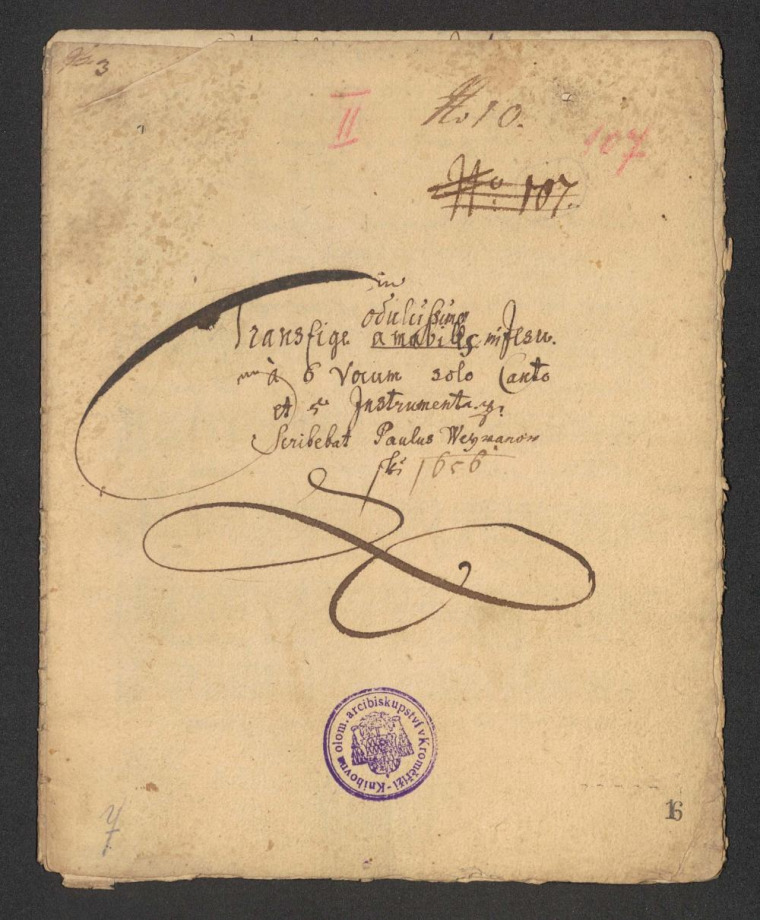 3
II
No 10.
107
No. 107.
o dulcissime
Transfige amabilis mi Jesu.
à 6 Vocum solo Canto
et 5 Instrumenta.
Scribebat Paulus Weÿwanow
ski 1656
Knihovna olom. arcibiskupství v Kroměříži
7
16